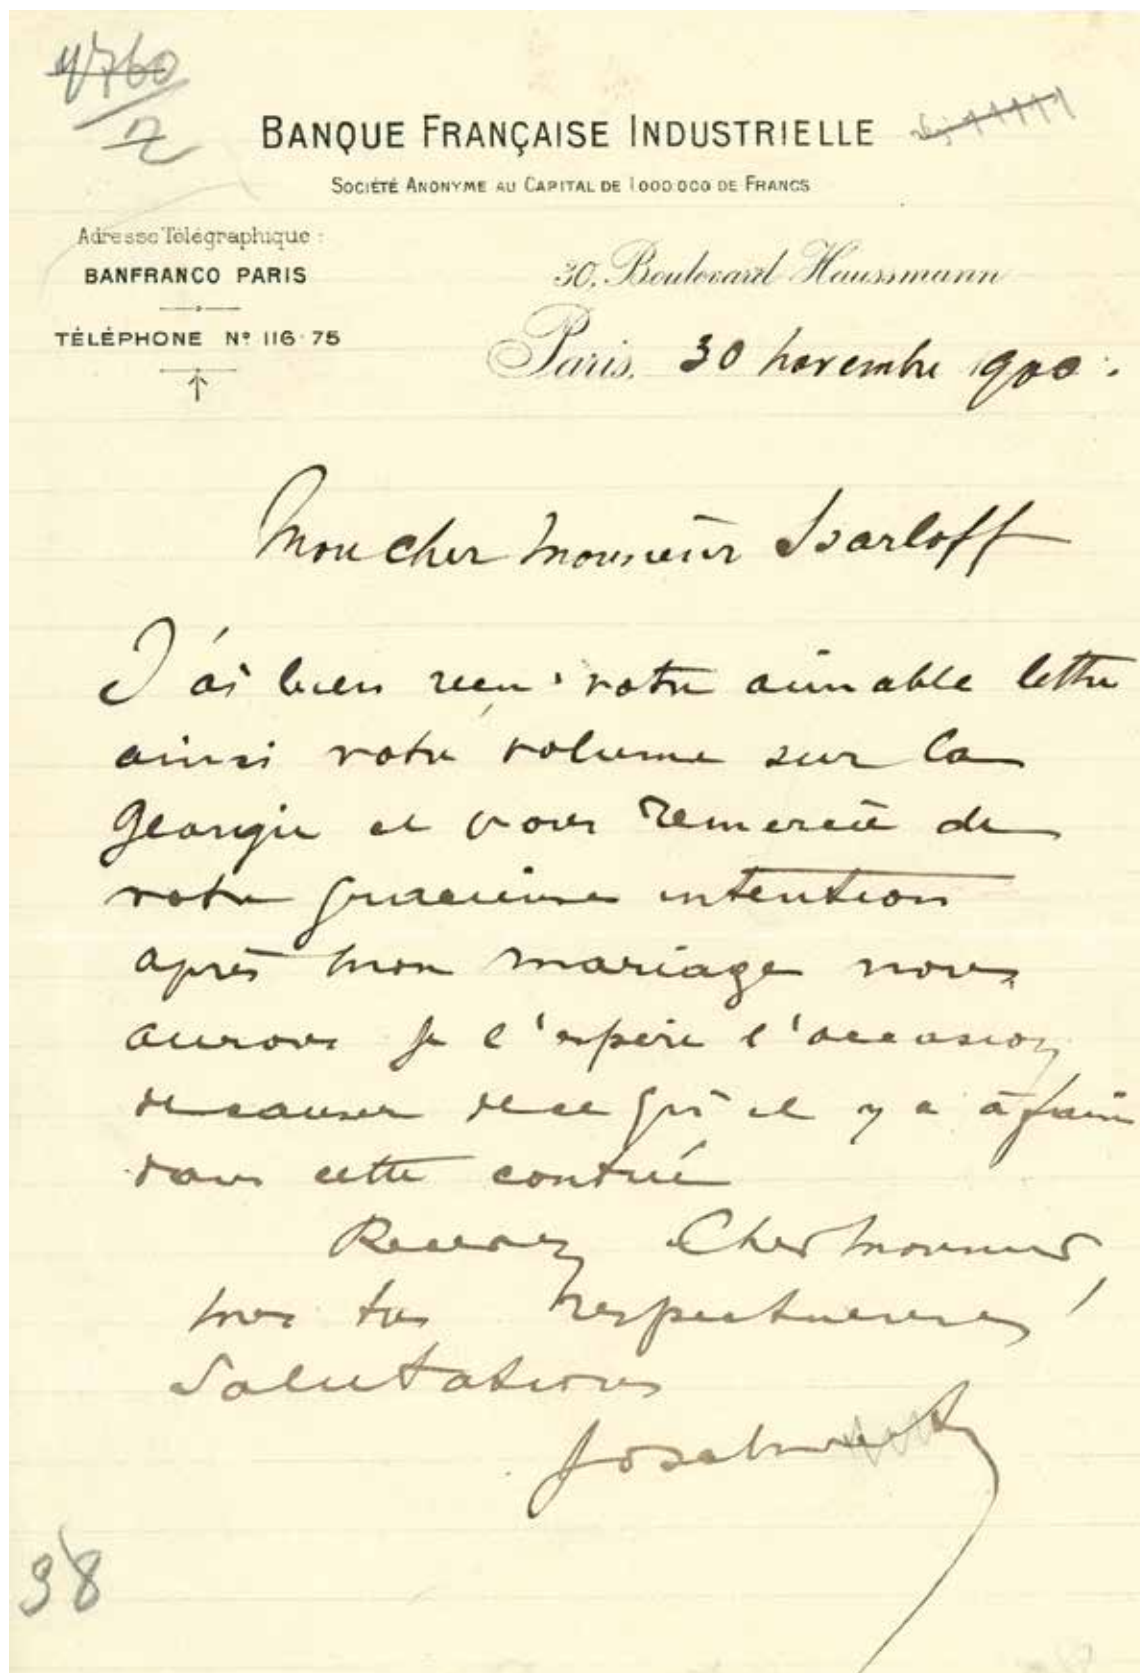 4760
BANQUE FRANÇAISE INDUSTRIELLE
SOCIÉTÉ ANONYME AU CAPITAL DE 1000.000 DE FRANCS
Adresse Télégraphique :
BANFRANCO PARIS
TÉLÉPHONE Nº 116·75
30, Boulevard Haussmann
Paris, 30 novembre 1900.
Mon cher Monsieur Isarloff
J'ai bien reçu votre aimable lettre
ainsi votre volume sur la
Georgie et vous remercie de
votre gracieuse intention
après mon mariage nous
aurons je l'espère l'occasion
de causer de ce qu'il y a à faire
dans cette contrée
Recevez Cher Monsieur,
mes tres respectueuses
Salutations
98